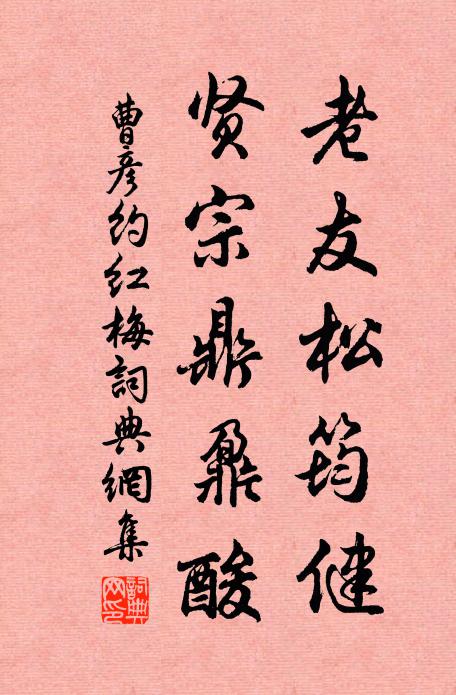 老友松筠健
贤宗鼎鼐酸
曹彦约红梅詞典網集
詞典网印